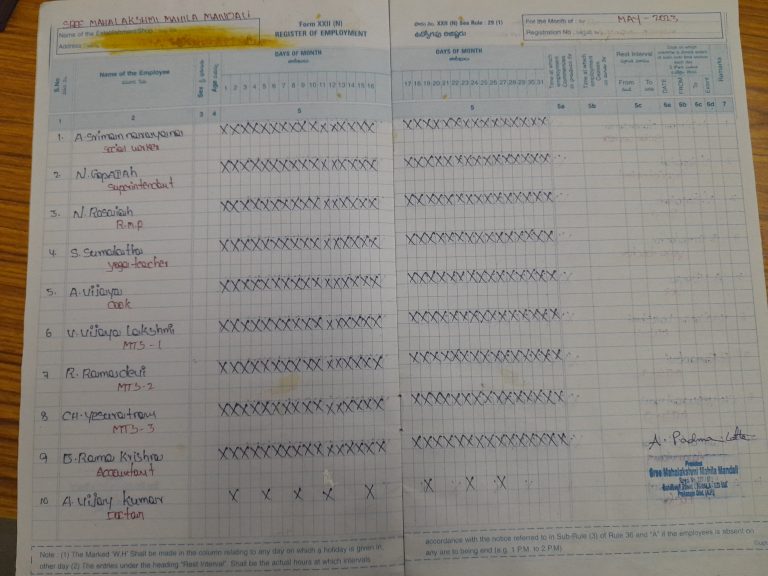 SREE MAHALAKSHMI MAHILA MANDALI
Form XXII (N)
REGISTER OF EMPLOYMENT
Name of the Establishment/Shop
Address
ఫారం నెం. XXII (N) See Rule : 29 (1)
ఉద్యోగపు రిజిష్టరు
For the Month of MAY - 2023
Registration No
S.No
Name of the Employee
Sex
Age
DAYS OF MONTH
1 2 3 4 5 6 7 8 9 10 11 12 13 14 15 16
DAYS OF MONTH
17 18 19 20 21 22 23 24 25 26 27 28 29 30 31
Time at which employment Commences
Time at which employment Ceases
Rest Interval
From
To
DATE
FROM
To
Extent
Remarks
1 2 3 4 5 5 5a 5b 5c 6a 6b 6c 6d 7
1. A. Sriman narayana XXXXXXXXXXXXXXXX XXXXXXXXXXXXXXX
Social worker
2. N. Gopaiah XXXXXXXXXXXXXXXX XXXXXXXXXXXXXXX
Superintendant
3. N. Rosaiah XXXXXXXXXXXXXXXX XXXXXXXXXXXXXXX
R.M.P
4. S. Sumalatha XXXXXXXXXXXXXXXX XXXXXXXXXXXXXXX
yoga teacher
5. A. Vijaya XXXXXXXXXXXXXXXX XXXXXXXXXXXXXXX
Cook
6 V. Vijaya Lakshmi XXXXXXXXXXXXXXXX XXXXXXXXXXXXXXX
MTS-1
7 R. Ramadevi XXXXXXXXXXXXXXXX XXXXXXXXXXXXXXX
MTS-2
8 CH. XXXXXXXXXXXXXXXX XXXXXXXXXXXXXXX
MTS-3
9 B. Rama Krishna XXXXXXXXXXXXXXXX XXXXXXXXXXXXXXX
Accountant
10 A. Vijay Kumar X X X X X X X X
A. Padma Latha
President
Sree Mahalakshmi Mahila Mandali
Note : (1) The Marked 'W.H' Shall be made in the column relating to any day on which a holiday is given in accordance with the notice referred to in Sub-Rule (3) of Rule 36 and "A" if the employees is absent on
other day (2) The entries under the heading "Rest Interval". Shall be the actual hours at which intervals any are to being end (e.g. 1 P.M. to 2 P.M)